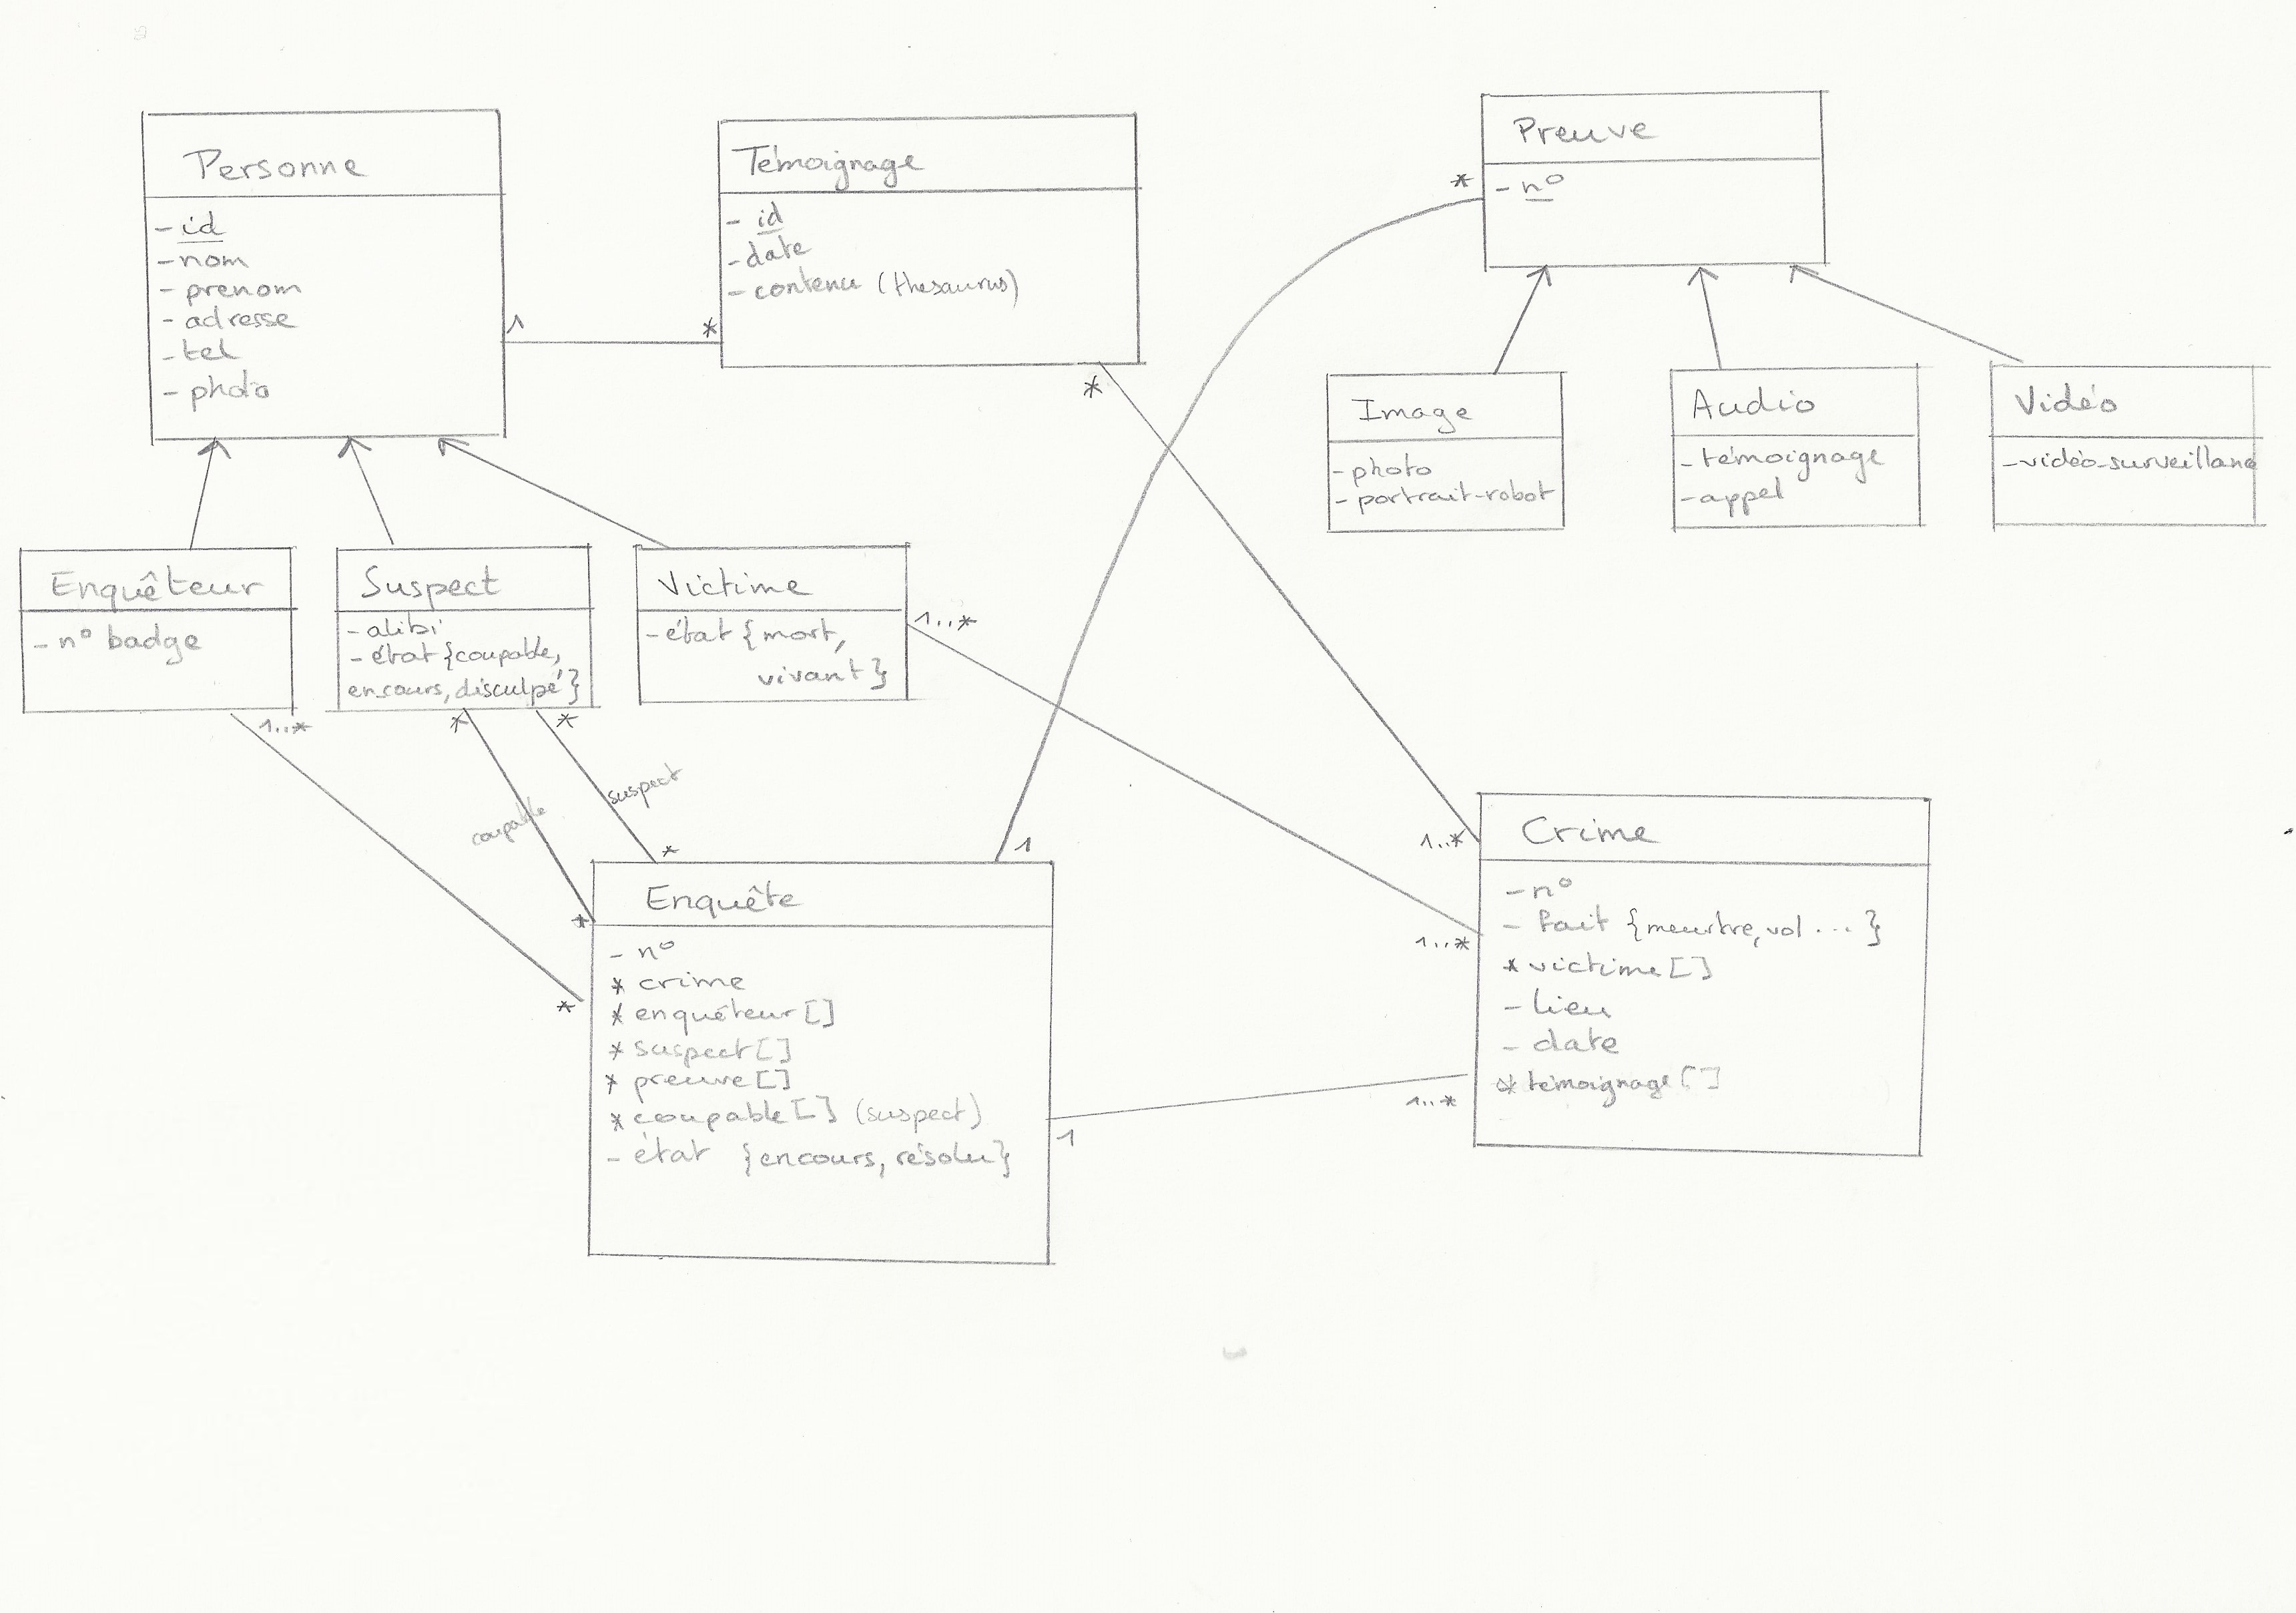 Personne
- id
- nom
- prenom
- adresse
- tel
- photo
1
*
Témoignage
- id
- date
- contenu (thesaurus)
*
Preuve
* - n°
Image
- photo
- portrait-robot
Audio
- témoignage
- appel
Vidéo
- vidéo-surveillance
Enquêteur
- n° badge
1..*
Suspect
- alibi
- état {coupable,
en cours, disculpé}
*
*
Victime
- état {mort,
vivant}
1..*
coupable
suspect
*
*
*
1
Enquête
- n°
* crime
* enquêteur []
* suspect []
* preuve []
* coupable [] (suspect)
- état {en cours, résolu}
1
1..*
1..*
1..*
Crime
- n°
- Fait {meurtre, vol ...}
* victime []
- lieu
- date
* témoignage []